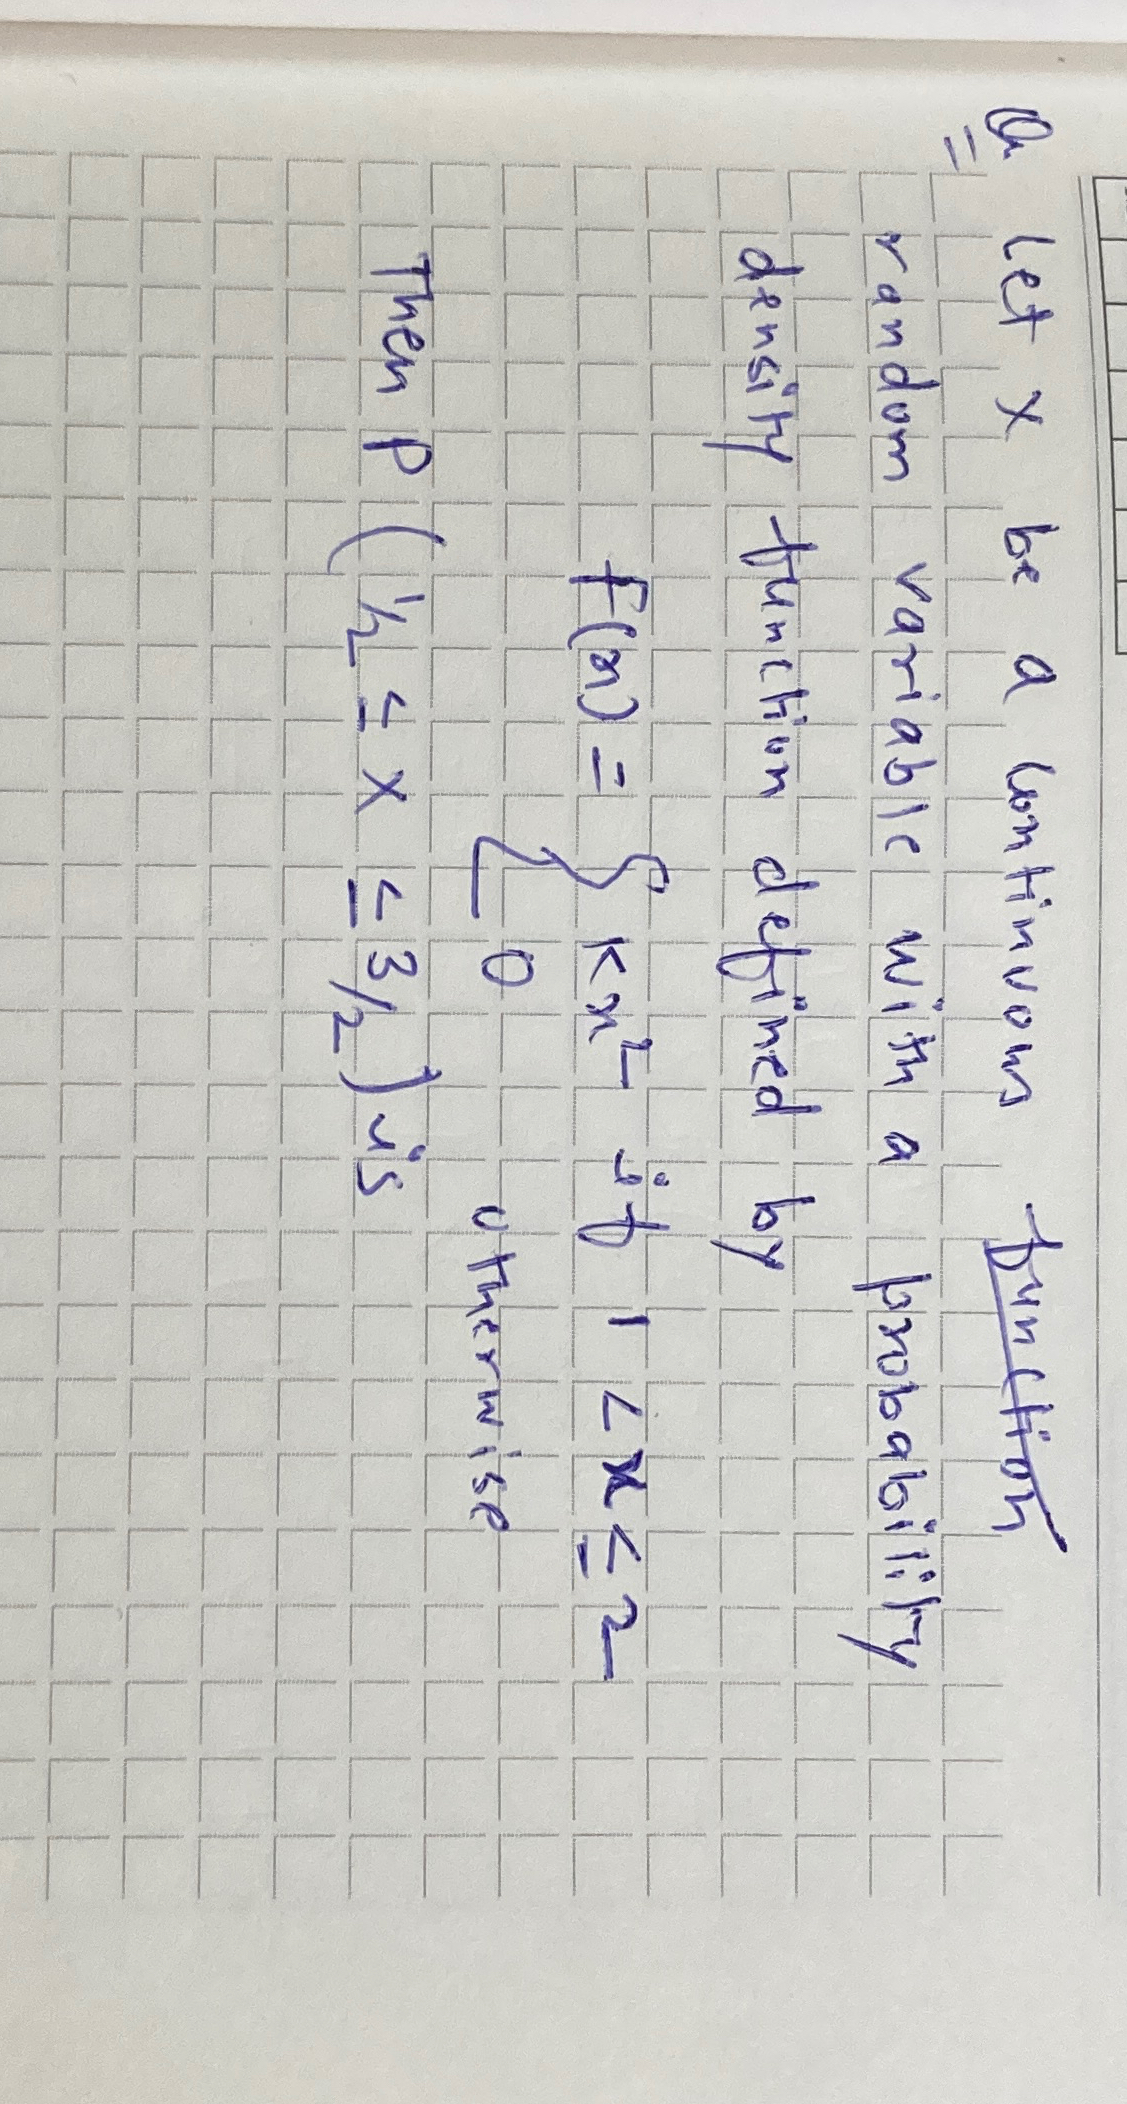 Q Let X be a continuous function
random variable with a probability
density function defined by
f(x) = { kx² if 1 < x ≤ 2
0 otherwise
Then P (1/2 ≤ X ≤ 3/2) is